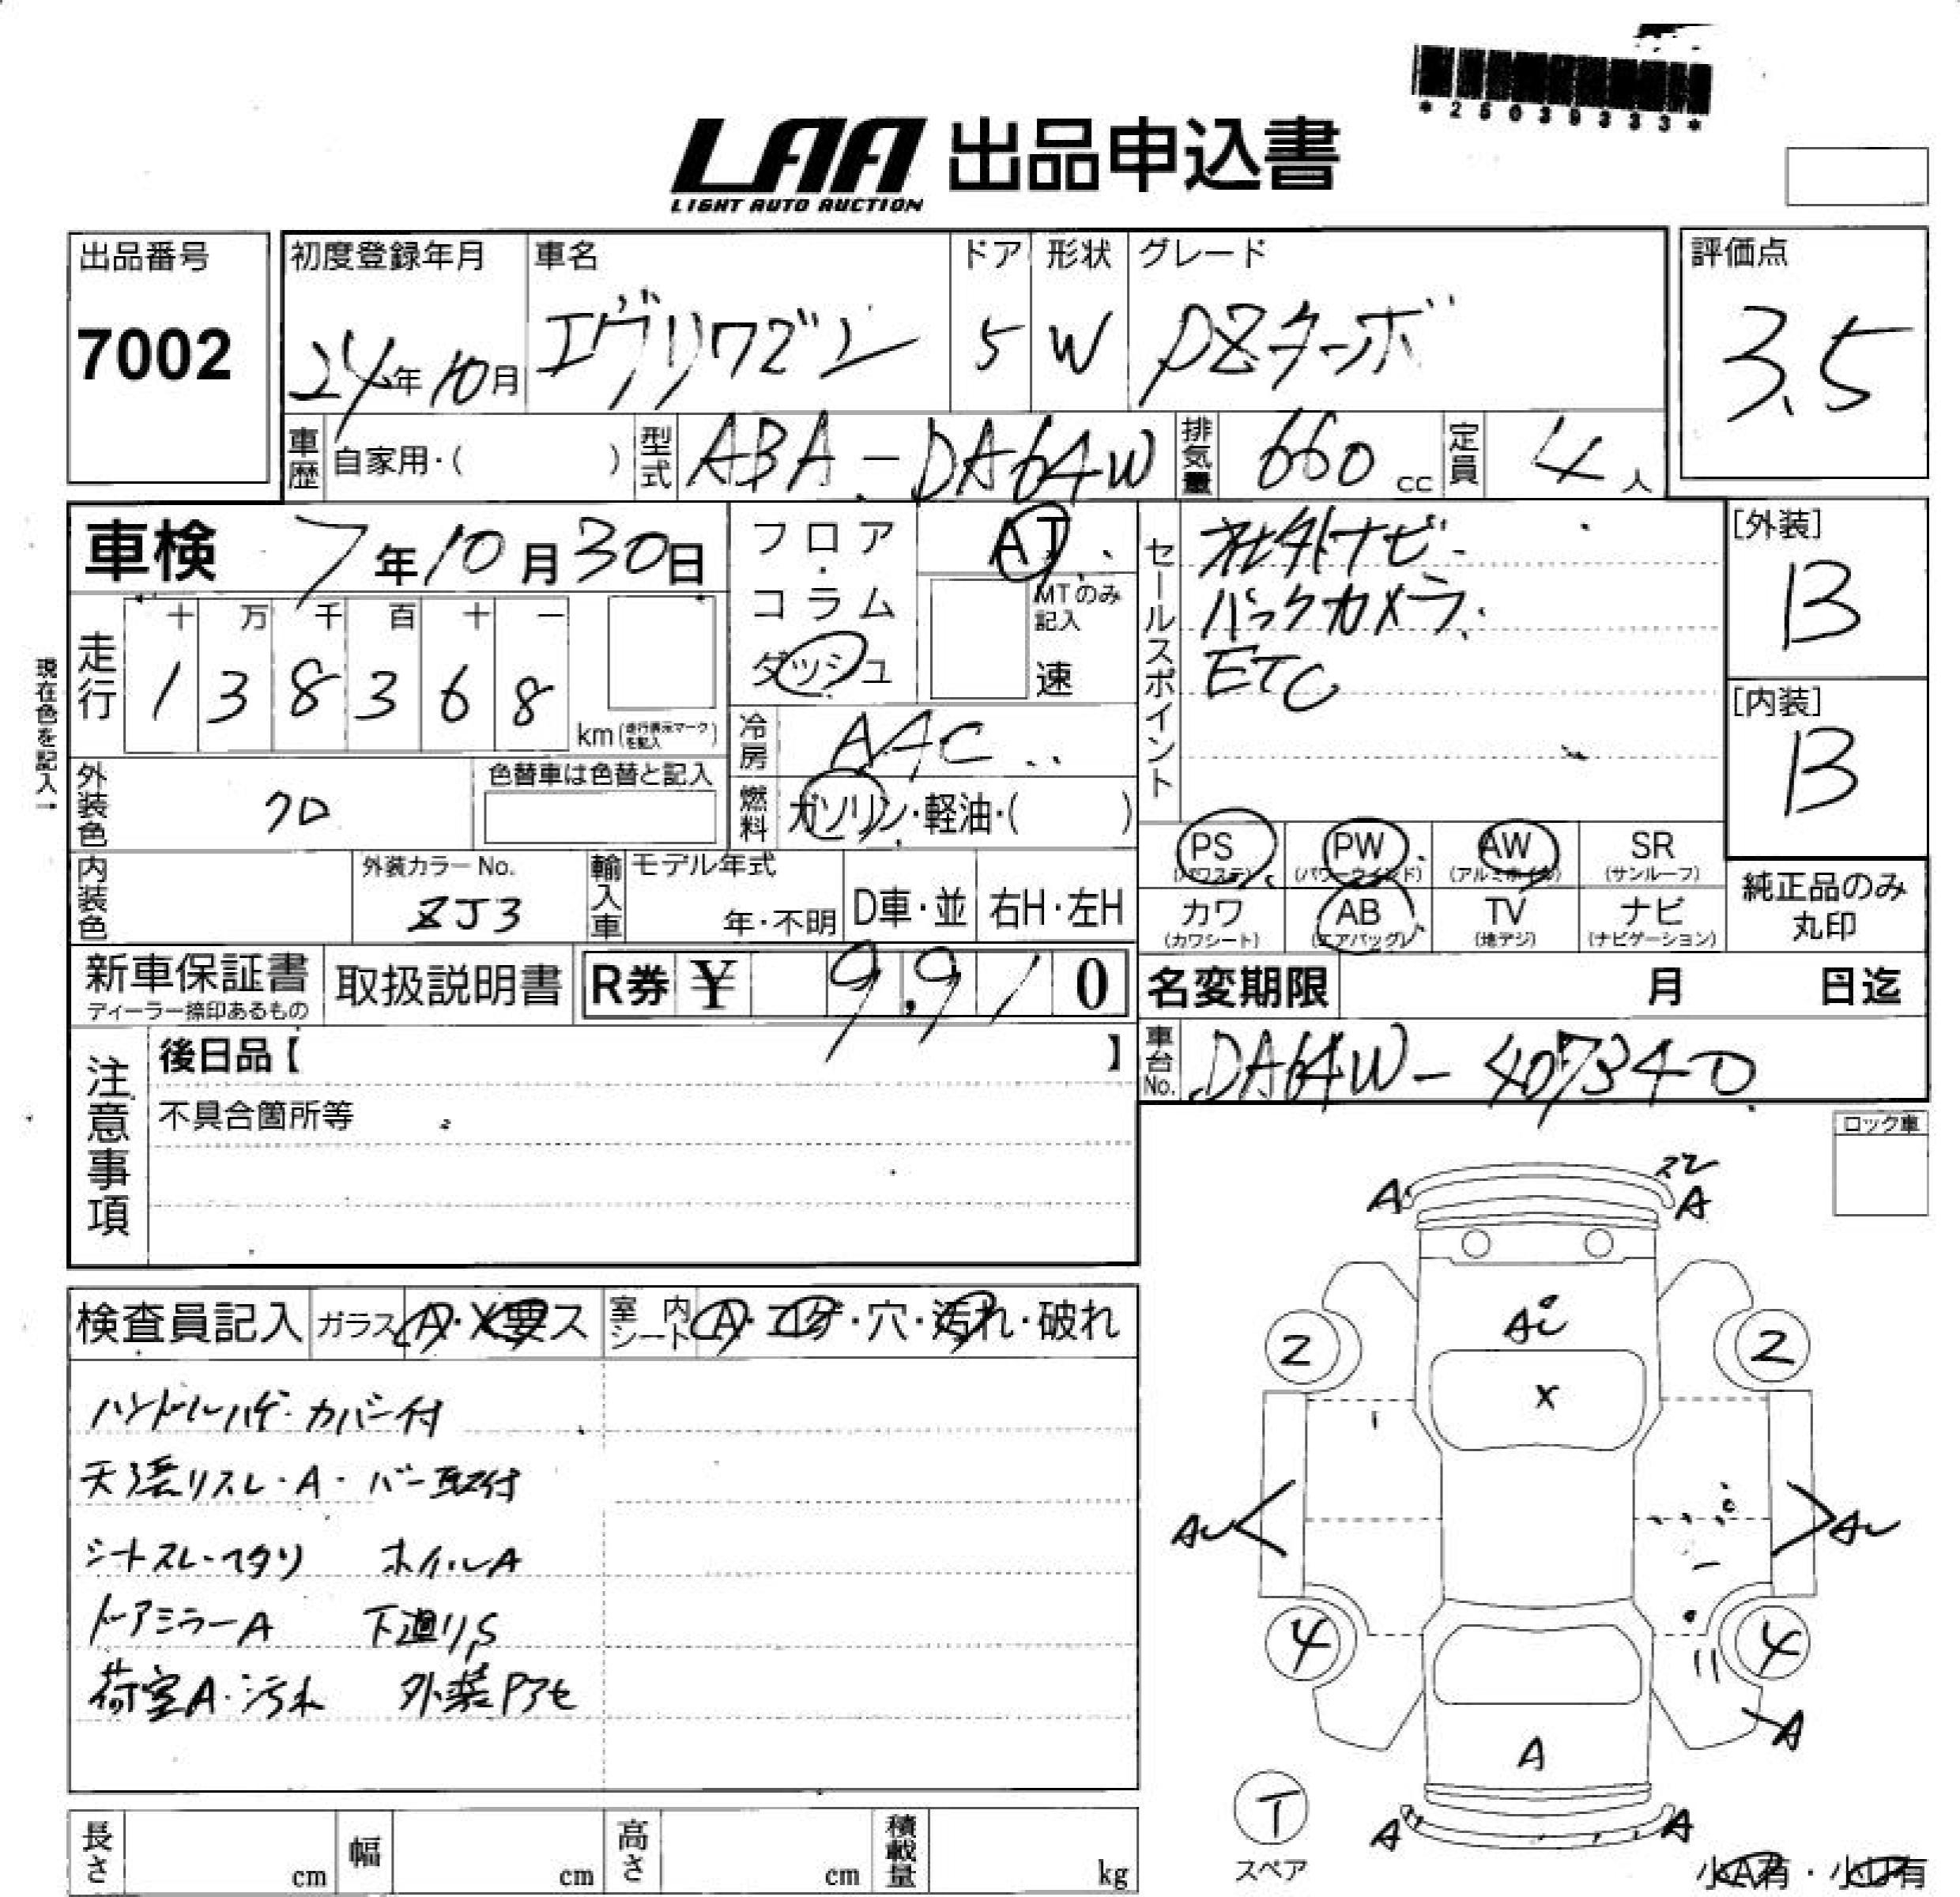 *25039333*
LAA 出品申込書
LIGHT AUTO AUCTION
出品番号 初度登録年月 車名 ドア 形状 グレード 評価点
7002 24年10月 エヴリワゴン 5 W PZターボ 3.5
車歴 自家用・( ) 型式 ABA-DA64W 排気量 660cc 定員 4人
車検 7年10月30日 フロア・コラム ダッシュ AT
MTのみ記入 速
セールスポイント 社外ナビ
バックカメラ
ETC
[外装] B
[内装] B
現在色を記入→
走行 十 万 千 百 十 一
1 3 8 3 6 8 km (走行表示マークを記入)
冷房 AAC
外装色 クロ 色替車は色替と記入
燃料 ガソリン・軽油・( )
PS (パワステ) PW (パワーウインド) AW (アルミホイル) SR (サンルーフ)
カワ (カワシート) AB (エアバッグ) TV (地デジ) ナビ (ナビゲーション)
純正品のみ丸印
内装色 外装カラーNo. ZJ3 輸入車 モデル年式 年・不明 D車・並 右H・左H
新車保証書 ディーラー捺印あるもの 取扱説明書 R券 ¥ 9,910
名変期限 月 日迄
車台No. DA64W-407340
注意事項 後日品【 】
不具合箇所等
ロック車
検査員記入 ガラス A・X要ス 室内シート A・コゲ・穴・汚れ・破れ
ハンドルハゲ・カバー付
天張リスレ・A・バー取付
シートスレ・ヘタリ ホイルA
ドアミラーA 下廻りS
荷室A・汚れ 外装Pアセ
A スレ A
2 AU 2
X
AU AU
4 4
A
A
T
スペア
A A
小A有・小U有
長さ cm 幅 cm 高さ cm 積載量 kg